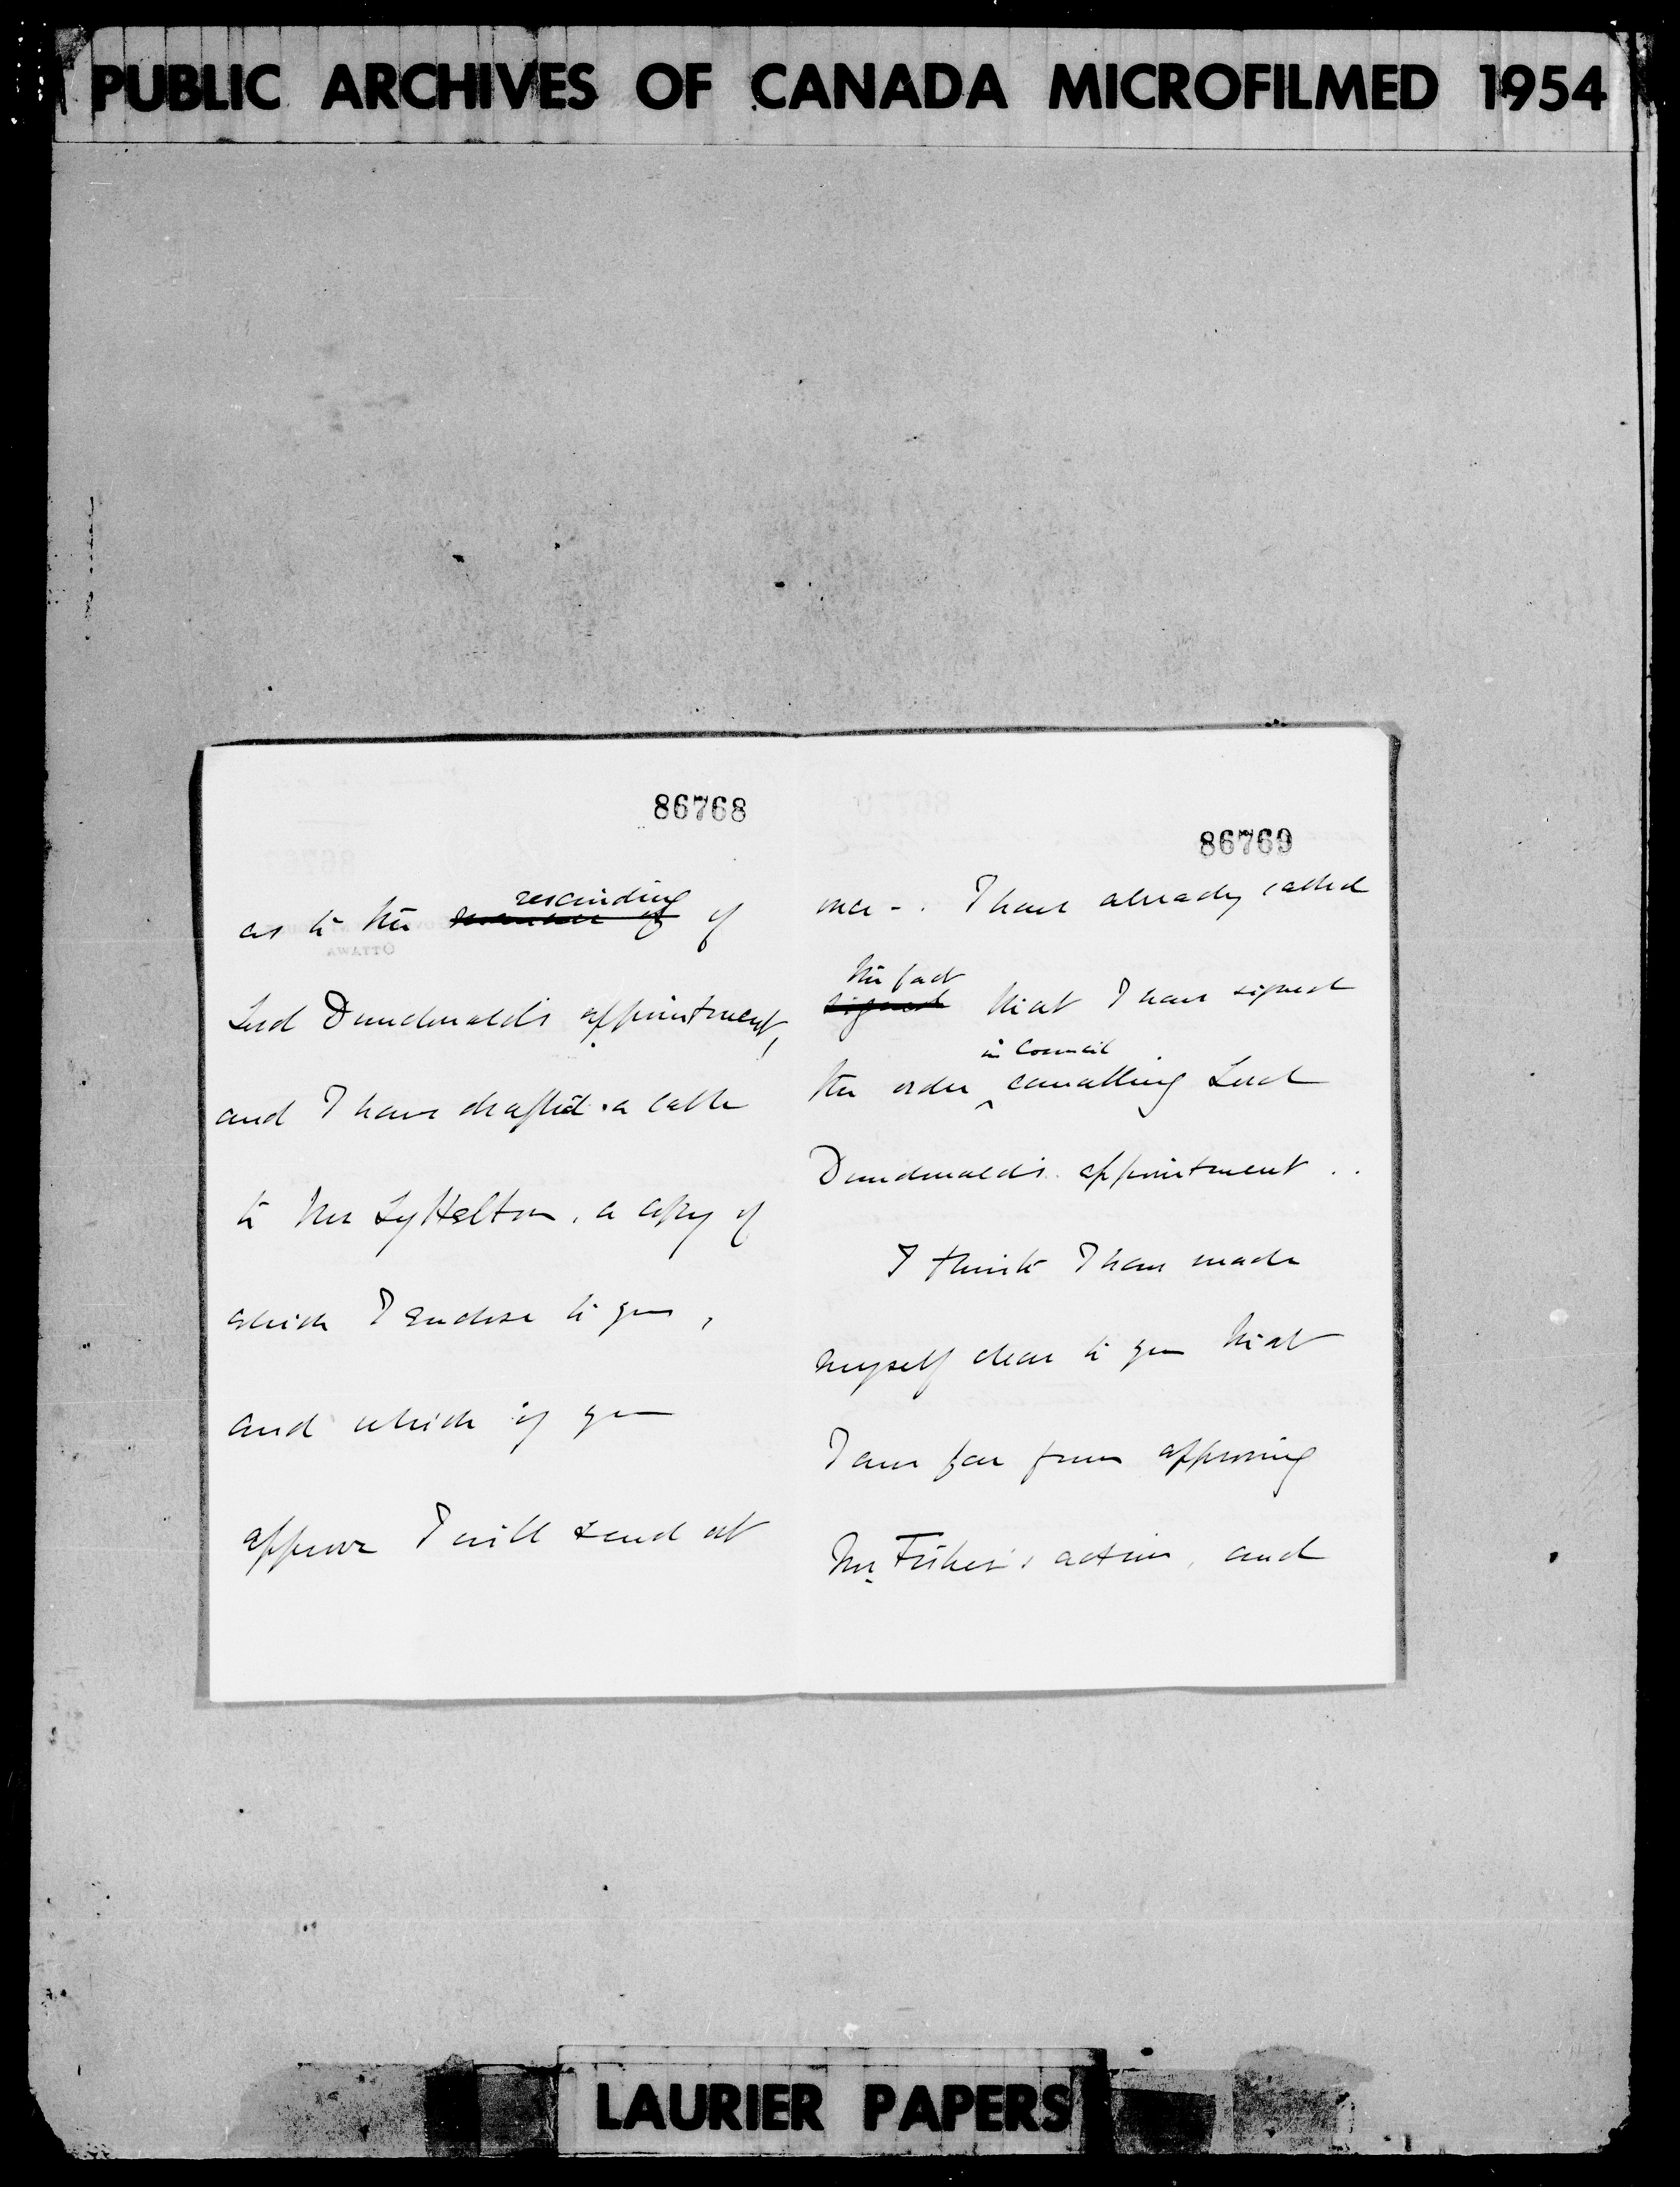 PUBLIC ARCHIVES OF CANADA MICROFILMED 1954
86768
rescinding
as to the of
Lord Dundonald's appointment,
and I have drafted a cable
to Mr Lyttelton, a copy of
which I enclose to you,
and which if you
approve I will send at
86769
once -. I have already cabled
the fact
signed that I have signed
in Council
the order ^ cancelling Lord
Dundonald's appointment ..
I think I have made
myself clear to you that
I am far from approving
Mr Fisher's action, and
LAURIER PAPERS